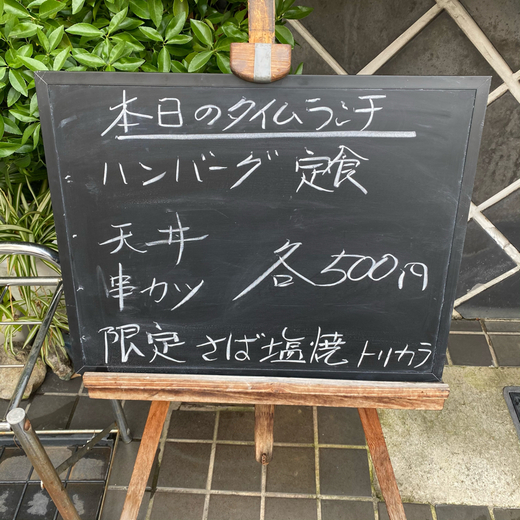 本日のタイムランチ
ハンバーグ 定食
天丼
串カツ 各500円
限定 さば塩焼 トリカラ